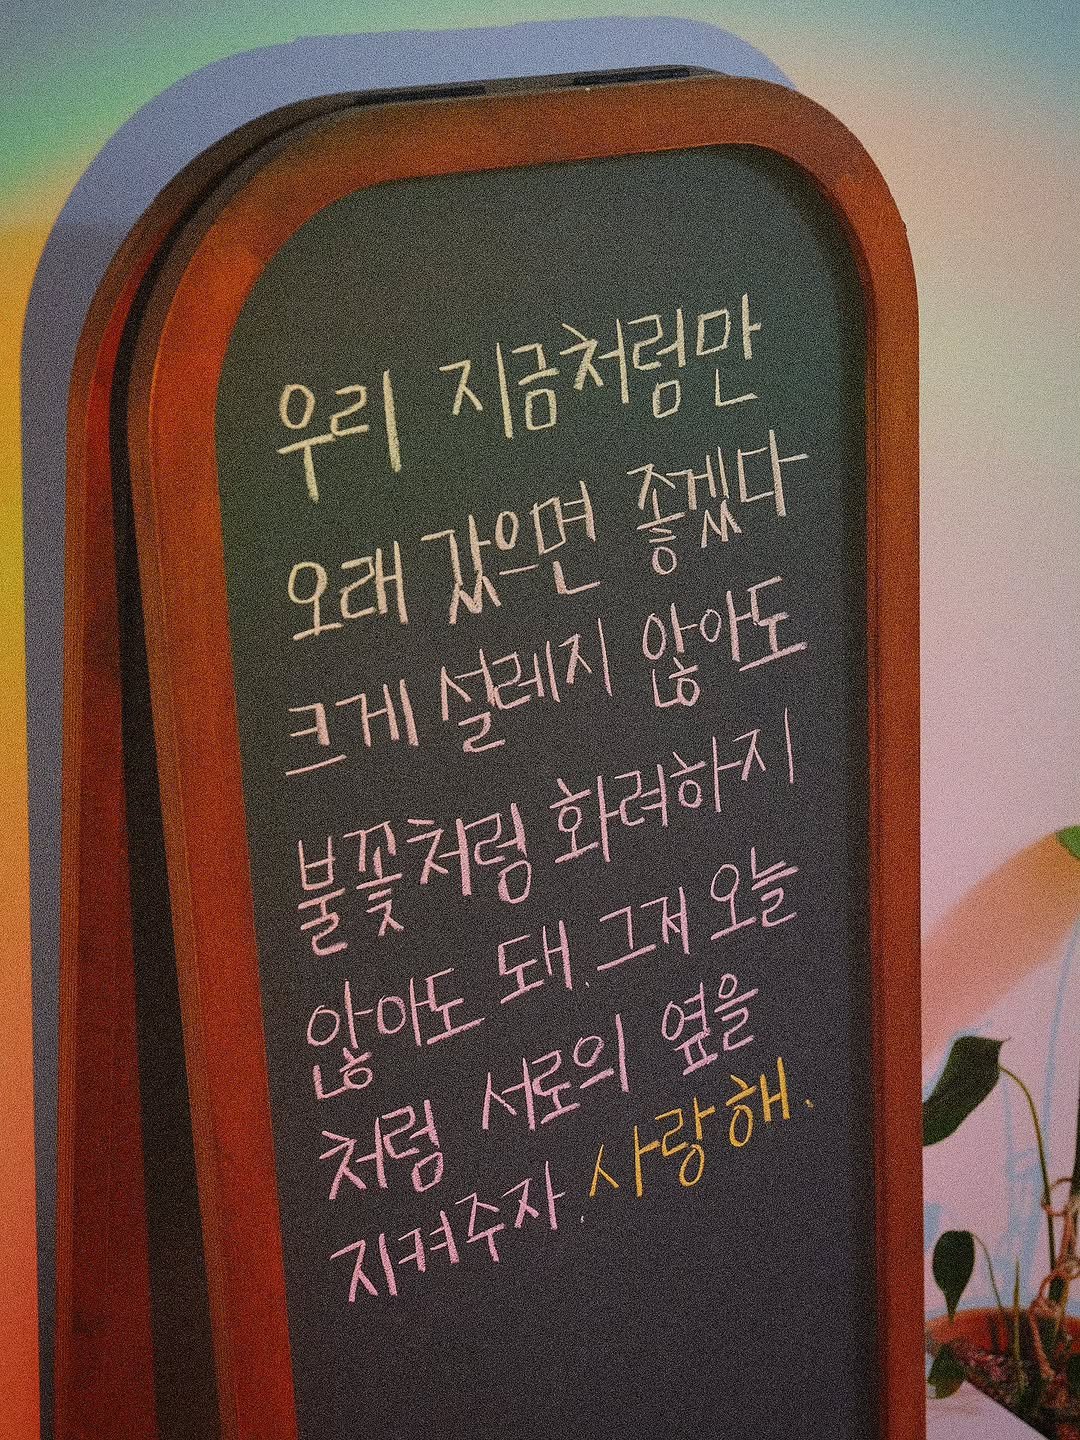 우리 지금처럼만
오래 갔으면 좋겠다
크게 설레지 않아도
불꽃처럼 화려하지
않아도 돼. 그저 오늘
처럼 서로의 옆을
지켜주자. 사랑해.